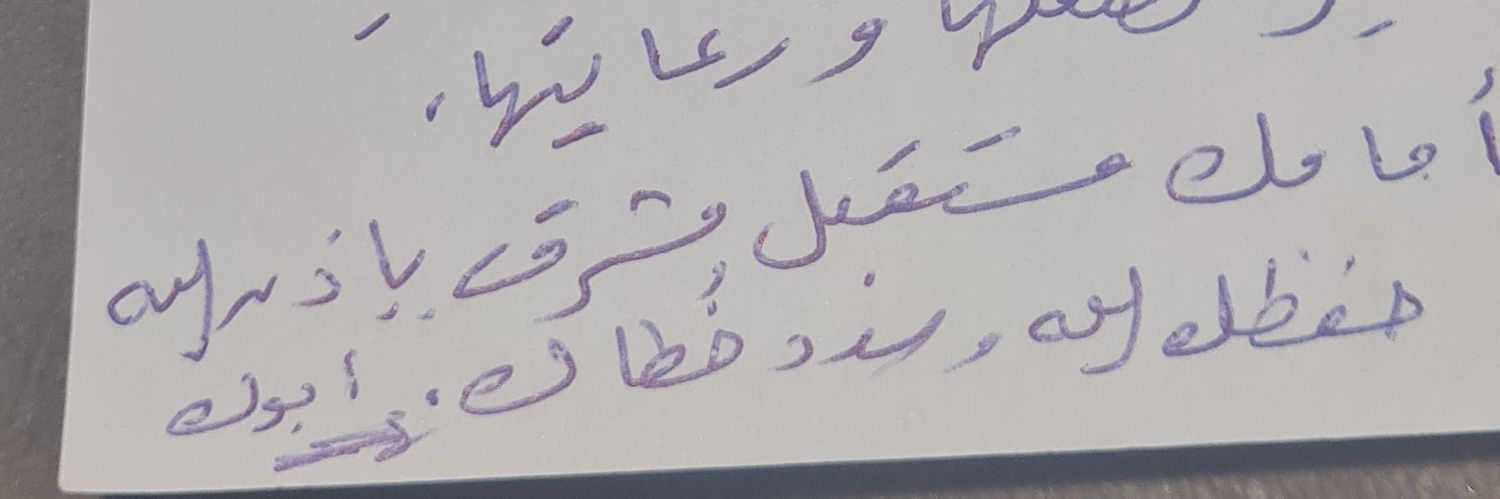 ورعايتها.
أمامك مستقبل مشرق بإذن الله
حفظك الله وسدد خُطاك. أبوك